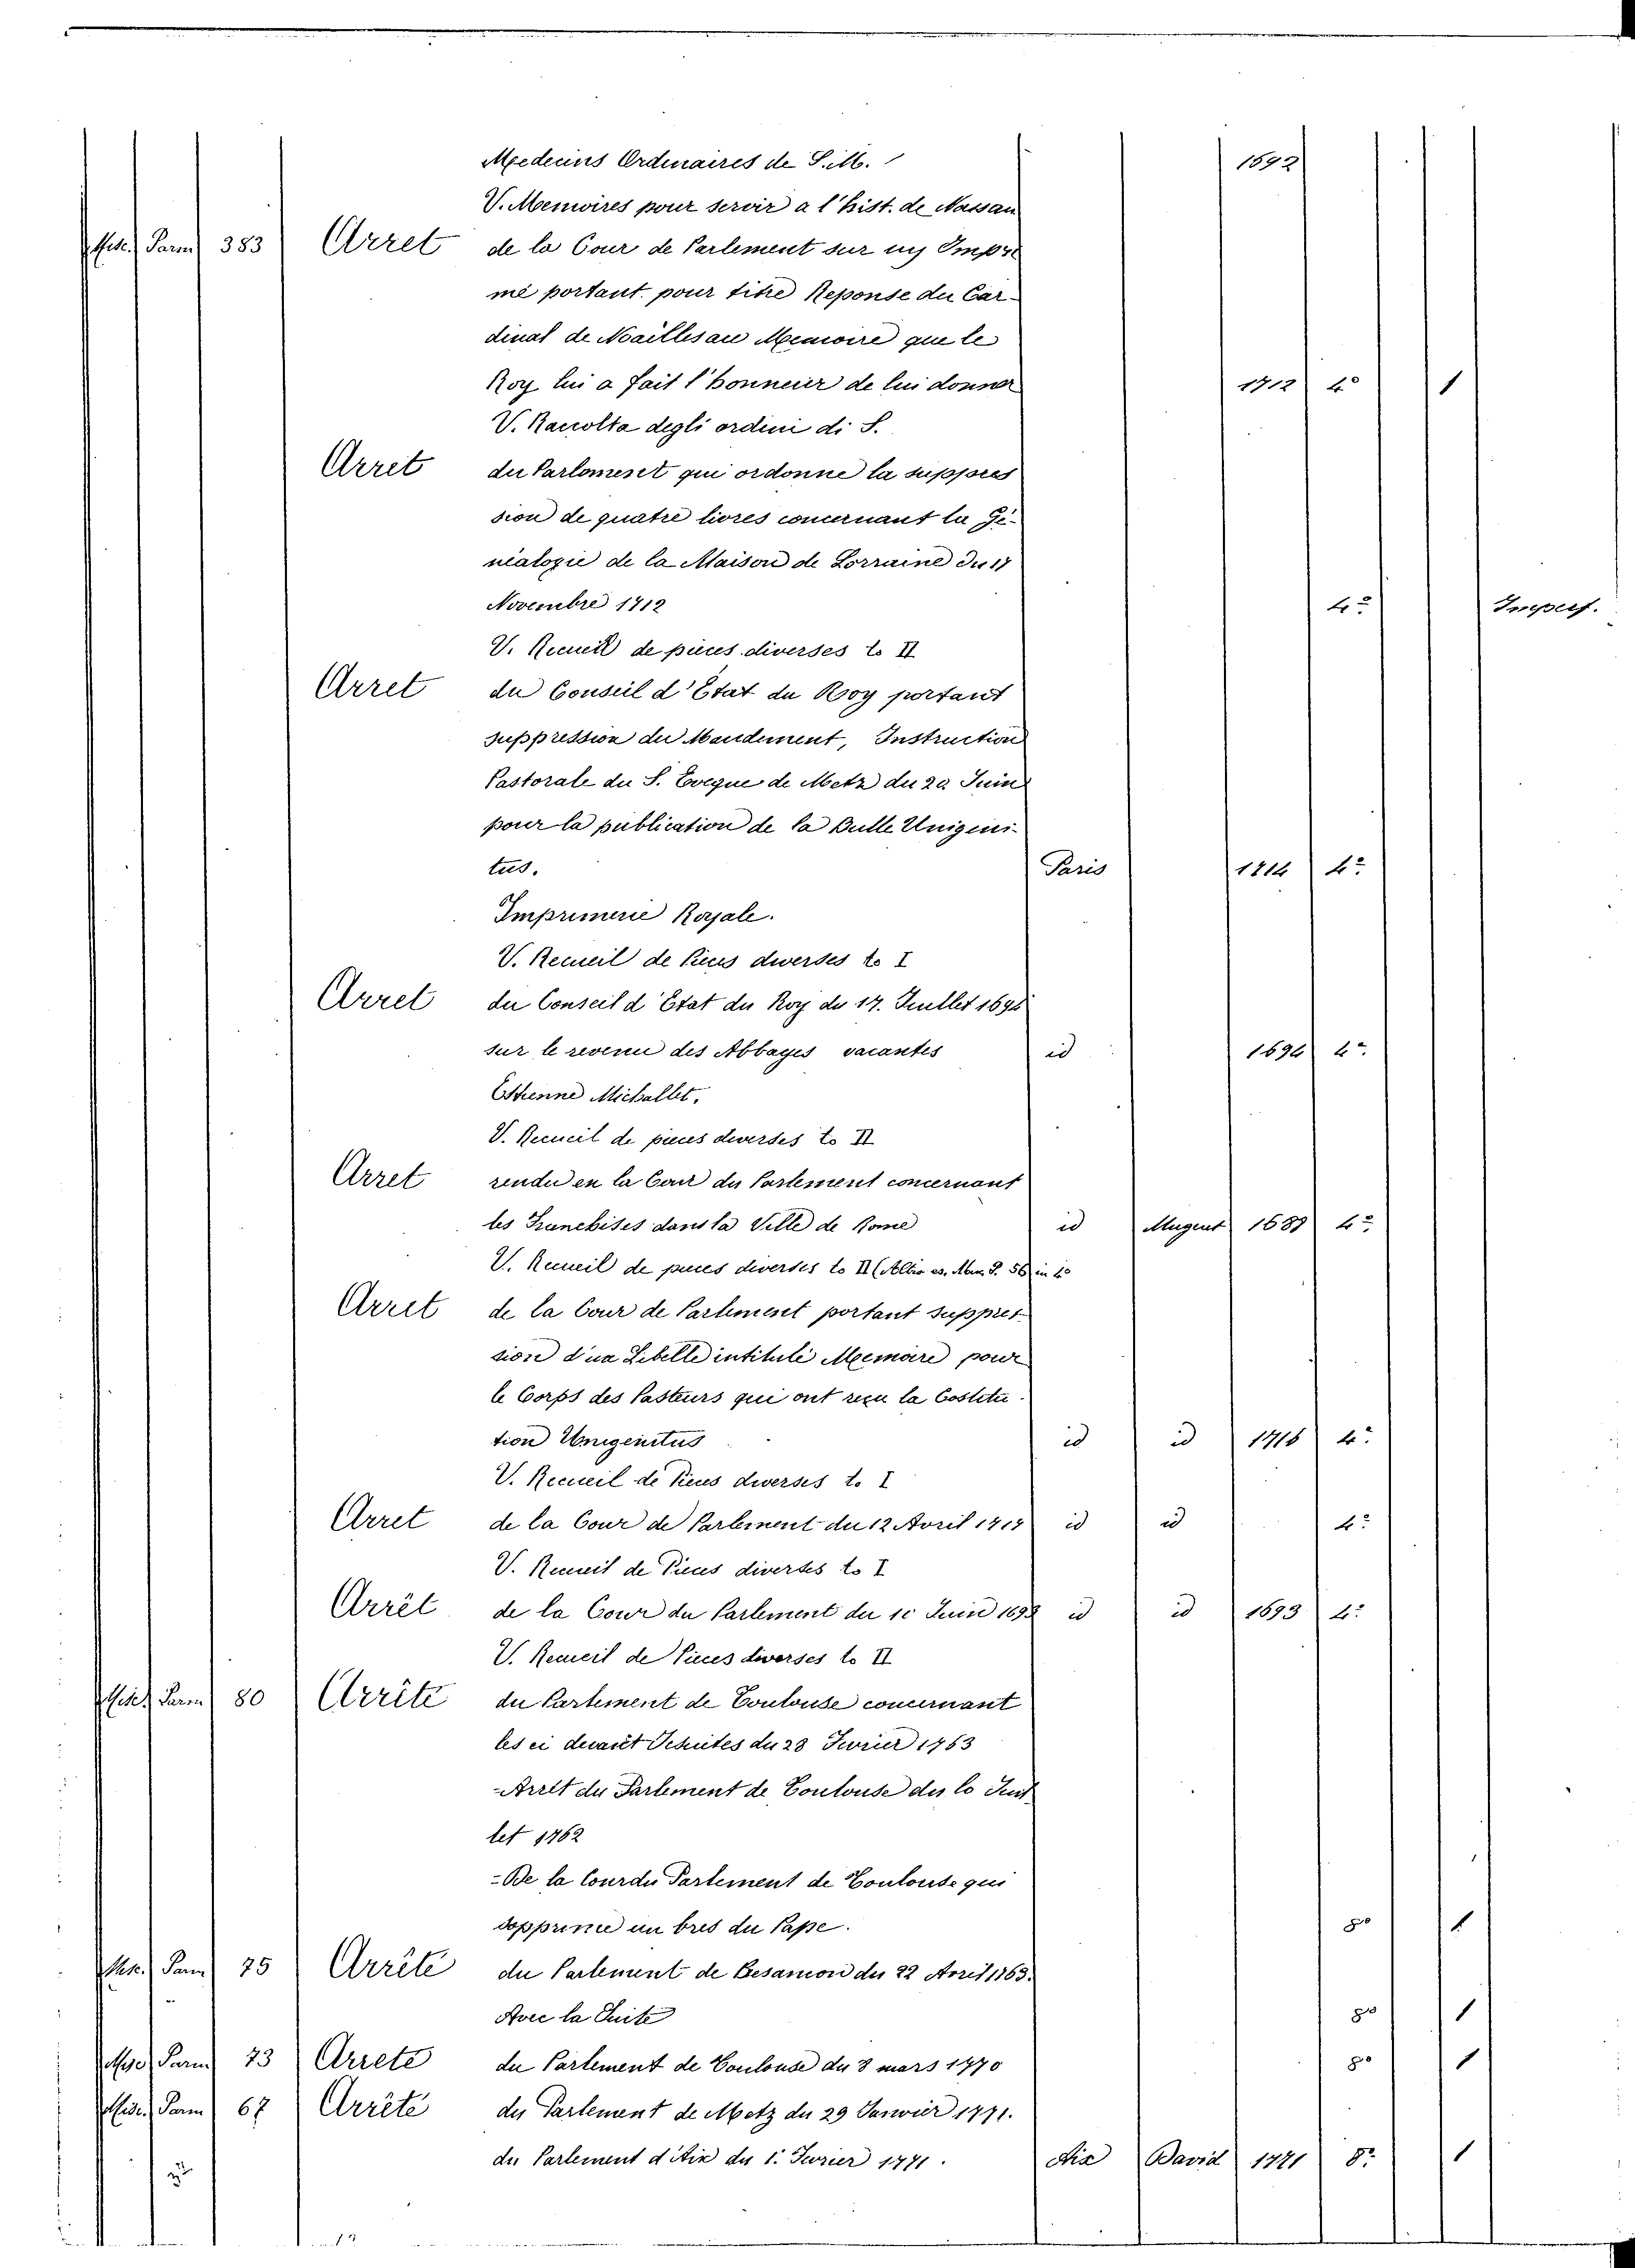 Medecins Ordinaires de S. M. 1692
V. Memoires pour servir a l'hist. de Nassau
Parm 383 Arret de la Cour de Parlement sur un Impri
mé portant pour titre Reponse du Car-
dinal de Noailles au Memoire que le
Roy lui a fait l'honneur de lui donner 1712 4º 1
V. Raccolta degli ordini di S.
Arret du Parlement qui ordonne la suppres
sion de quatre livres concernant la Gé-
néalogie de la Maison de Lorraine du 17
Novembre 1712 4º Imperf.
V. Recueil de pieces diverses to II
Arret du Conseil d'Etat du Roy portant
suppression du Mandement, Instruction
Pastorale du S. Eveque de Metz du 20 Juin
pour la publication de la Bulle Unigeni-
tus. Paris 1714 4º
Imprimerie Royale.
V. Recueil de Pieces diverses to I
Arret du Conseil d'Etat du Roy du 14. Juillet 1694
sur le revenu des Abbayes vacantes id 1694 4º
Estienne Michallet.
V. Recueil de pieces diverses to II
Arret rendu en la Cour du Parlement concernant
les Franchises dans la Ville de Rome id Muguet 1688 4º
V. Recueil de pieces diverses to II 56 in 4º
Arret de la Cour de Parlement portant suppres-
sion d'un Libelle intitulé Memoire pour
le Corps des Pasteurs qui ont reçu la Costitu-
tion Unigenitus id id 1716 4º
V. Recueil de Pieces diverses to I
Arret de la Cour de Parlement du 12 Avril 1717 id id 4º
V. Recueil de Pieces diverses to I
Arrêt de la Cour du Parlement du 1c Juin 1693 id id 1693 4º
V. Recueil de Pieces diverses to II
Parm 80 Arrête du Parlement de Toulouse concernant
les ci devant Jesuites du 28 Fevrier 1763
- Arret du Parlement de Toulouse du lo Juil
let 1762
- De la Cour du Parlement de Toulouse qui
supprime un bref du Pape. 8º 1
Parm 75 Arrête du Parlement de Besancon du 22 Avril 1763.
Avec la Suite 8º 1
Parm 73 Arrete du Parlement de Toulouse du 8 mars 1770 8º 1
Parm 67 Arrêté du Parlement de Metz du 29 Janvier 1771.
du Parlement d'Aix du 1. Fevrier 1771. Aix David 1771 8º 1